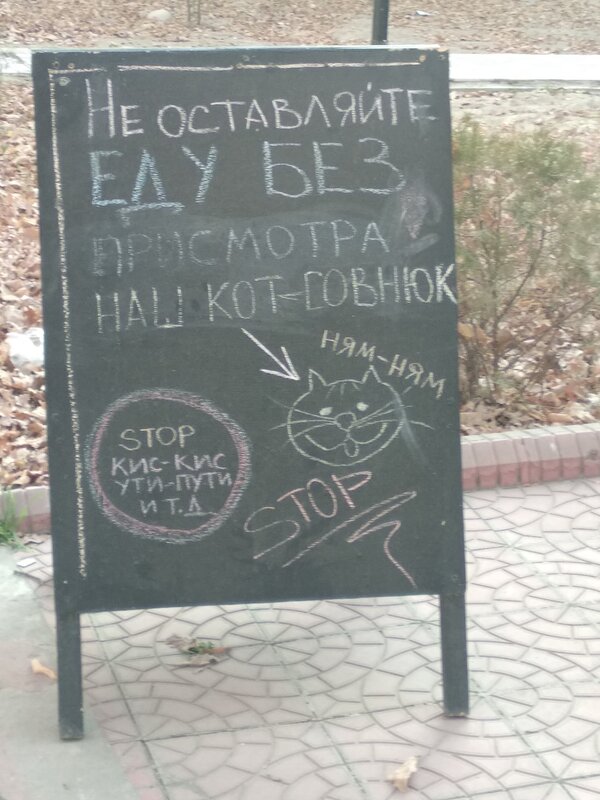 Не оставляйте
еду без
присмотра
наш кот-говнюк
ням-ням
STOP
кис-кис
ути-пути
и т.д
STOP